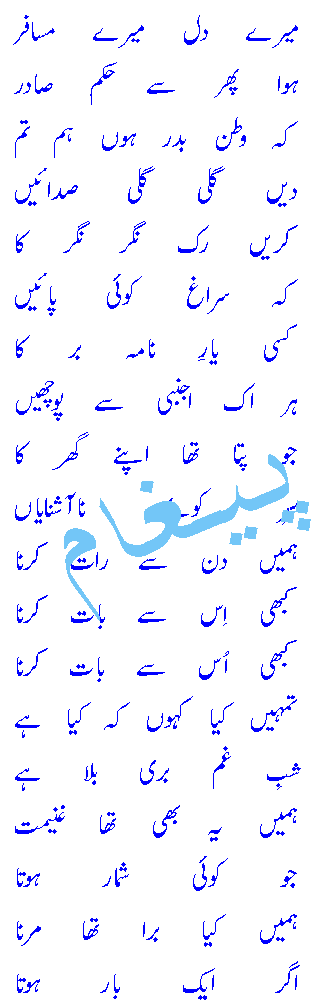 میرے دل میرے مسافر
ہوا پھر سے حکم صادر
کہ وطن بدر ہوں ہم تم
دیں گلی گلی صدائیں
کریں رک نگر نگر کا
کہ سراغ کوئی پائیں
کسی یارِ نامہ بر کا
ہر اک اجنبی سے پوچھیں
جو پتا تھا اپنے گھر کا
کوئے ناآشنایاں
ہمیں دن سے رات کرنا
کبھی اِس سے بات کرنا
کبھی اُس سے بات کرنا
تمہیں کیا کہوں کہ کیا ہے
شبِ غم بری بلا ہے
ہمیں یہ بھی تھا غنیمت
جو کوئی شمار ہوتا
ہمیں کیا برا تھا مرنا
اگر ایک بار ہوتا
پیغام